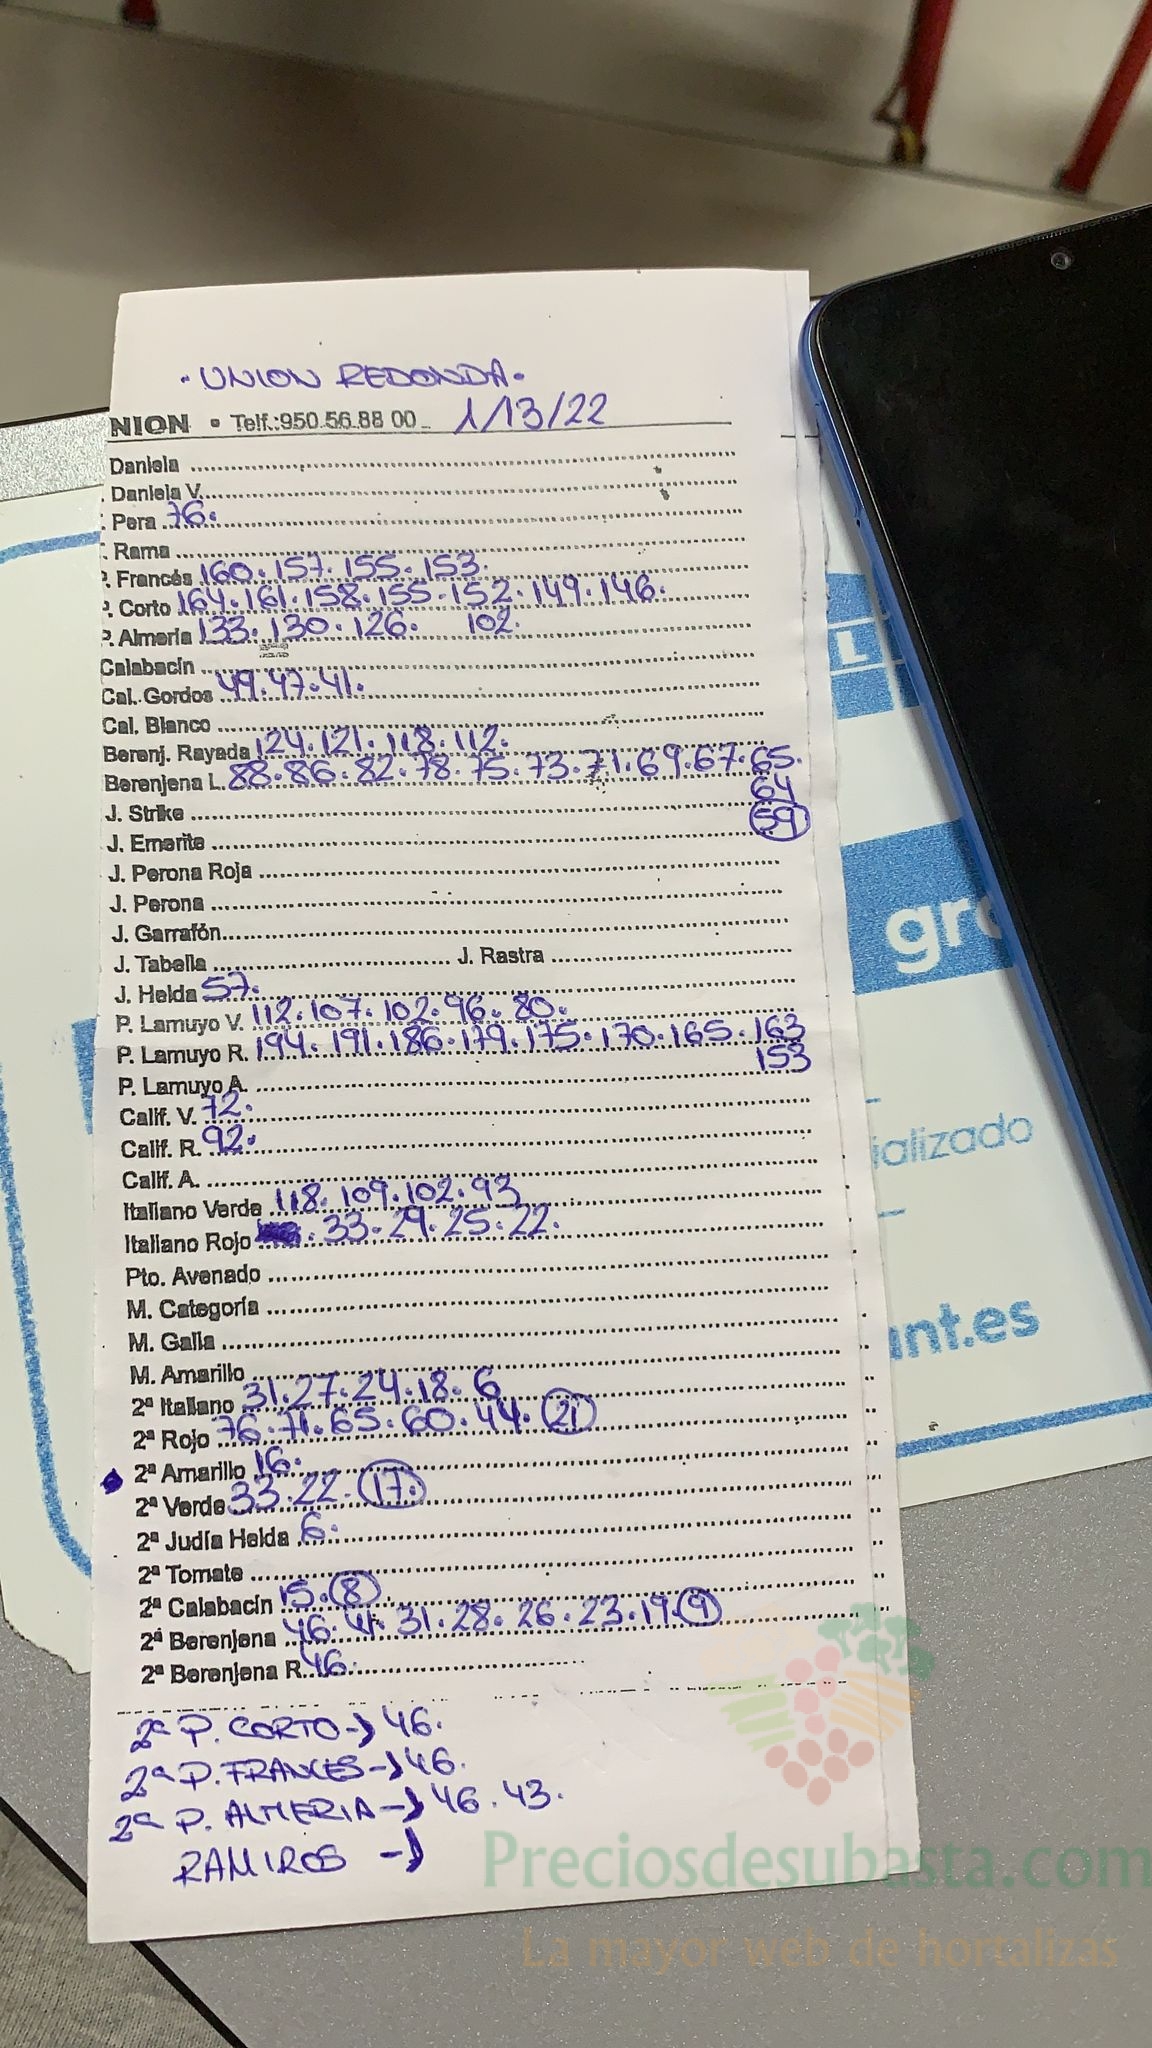 · UNION REDONDA ·
NION • Telf.:950 56 88 00 1/13/22
Daniela
Daniela V.
Pera 76.
. Rama
P. Francés 160. 157. 155. 153.
P. Corto 164. 161. 158. 155. 152. 149. 146.
P. Almería 133. 130. 126. 102.
Calabacín
Cal. Gordos 49. 47. 41.
Cal. Blanco
Berenj. Rayada 124. 121. 118. 112.
Berenjena L. 88. 86. 82. 78. 75. 73. 71. 69. 67. 65.
64
J. Strike
59
J. Emerite
J. Perona Roja
J. Perona
J. Garrafón
J. Tabella J. Rastra
J. Helda 57.
P. Lamuyo V. 112. 107. 102. 96. 80.
P. Lamuyo R. 194. 191. 186. 179. 175. 170. 165. 163
153
P. Lamuyo A.
Calif. V. 72.
Calif. R. 92.
Calif. A.
Italiano Verde 118. 109. 102. 93
Italiano Rojo . 33. 29. 25. 22.
Pto. Avenado
M. Categoría
M. Galia
M. Amarillo
2ª Italiano 31. 27. 24. 18. 6
2ª Rojo 76. 71. 65. 60. 44. 21
2ª Amarillo 16.
2ª Verde 33. 22. 17.
2ª Judía Helda 6.
2ª Tomate
2ª Calabacín 15. 8
2ª Berenjena 46. 41. 31. 28. 26. 23. 19. 9
2ª Berenjena R. 46.
2ª P. CORTO → 46.
2ª P. FRANCES → 46.
2ª P. ALMERIA → 46. 43.
RAMIROS →
L
gra
ializado
ant.es
Preciosdesubasta.com
La mayor web de hortalizas